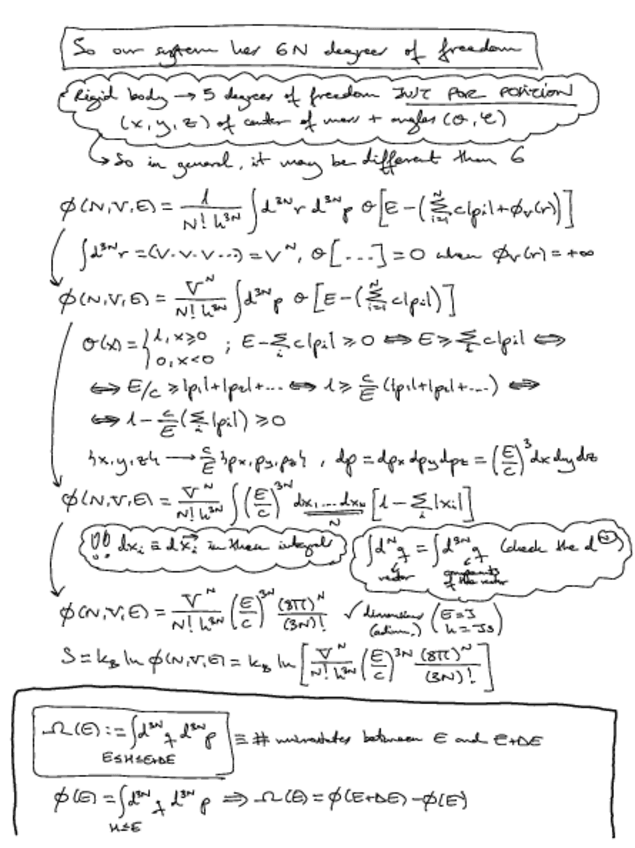 So our system has 6N degrees of freedom
Rigid body → 5 degrees of freedom JUST FOR POSITION
(x, y, z) of center of mass + angles (θ, φ)
↳ So in general, it may be different than 6
ϕ(N,V,E) = 1/(N! h^{3N}) ∫ d^{3N}r d^{3N}p θ[E - (∑_{i=1}^{N} c|p_i| + ϕ_V(r))]
∫ d^{3N}r = (V·V·V...) = V^N, θ[...] = 0 when ϕ_V(r) = +∞
ϕ(N,V,E) = V^N/(N! h^{3N}) ∫ d^{3N}p θ[E - (∑_{i=1}^{N} c|p_i|)]
θ(x) = {1, x≥0; 0, x<0 ; E - ∑_i c|p_i| ≥ 0 ⇔ E ≥ ∑_i c|p_i| ⇔
⇔ E/c ≥ |p_1| + |p_2| + ... ⇔ 1 ≥ c/E (|p_1| + |p_2| + ...) ⇔
⇔ 1 - c/E (∑_i |p_i|) ≥ 0
{x, y, z} → c/E {px, py, pz}, dp = dpx dpy dpz = (E/c)^3 dx dy dz
ϕ(N,V,E) = V^N/(N! h^{3N}) ∫ (E/c)^{3N} dx_1 .... dx_N [1 - ∑_i |x_i|]
N
!! dx_i ≡ dx⃗_i in these integrals
∫ d^N q = ∫ d^{3N} q (check the d^N)
vector components of the vector
ϕ(N,V,E) = V^N/(N! h^{3N}) (E/c)^{3N} (8π)^N/(3N)! ✓ dimensions (adim.) (E = J h = Js)
S = k_B ln ϕ(N,V,E) = k_B ln [V^N/(N! h^{3N}) (E/c)^{3N} (8π)^N/(3N)!]
Ω(E) := ∫ d^{3N}q d^{3N}p ≡ # microstates between E and E+DE
E≤H≤E+DE
ϕ(E) = ∫ d^{3N}q d^{3N}p ⇒ Ω(E) = ϕ(E+DE) - ϕ(E)
H≤E